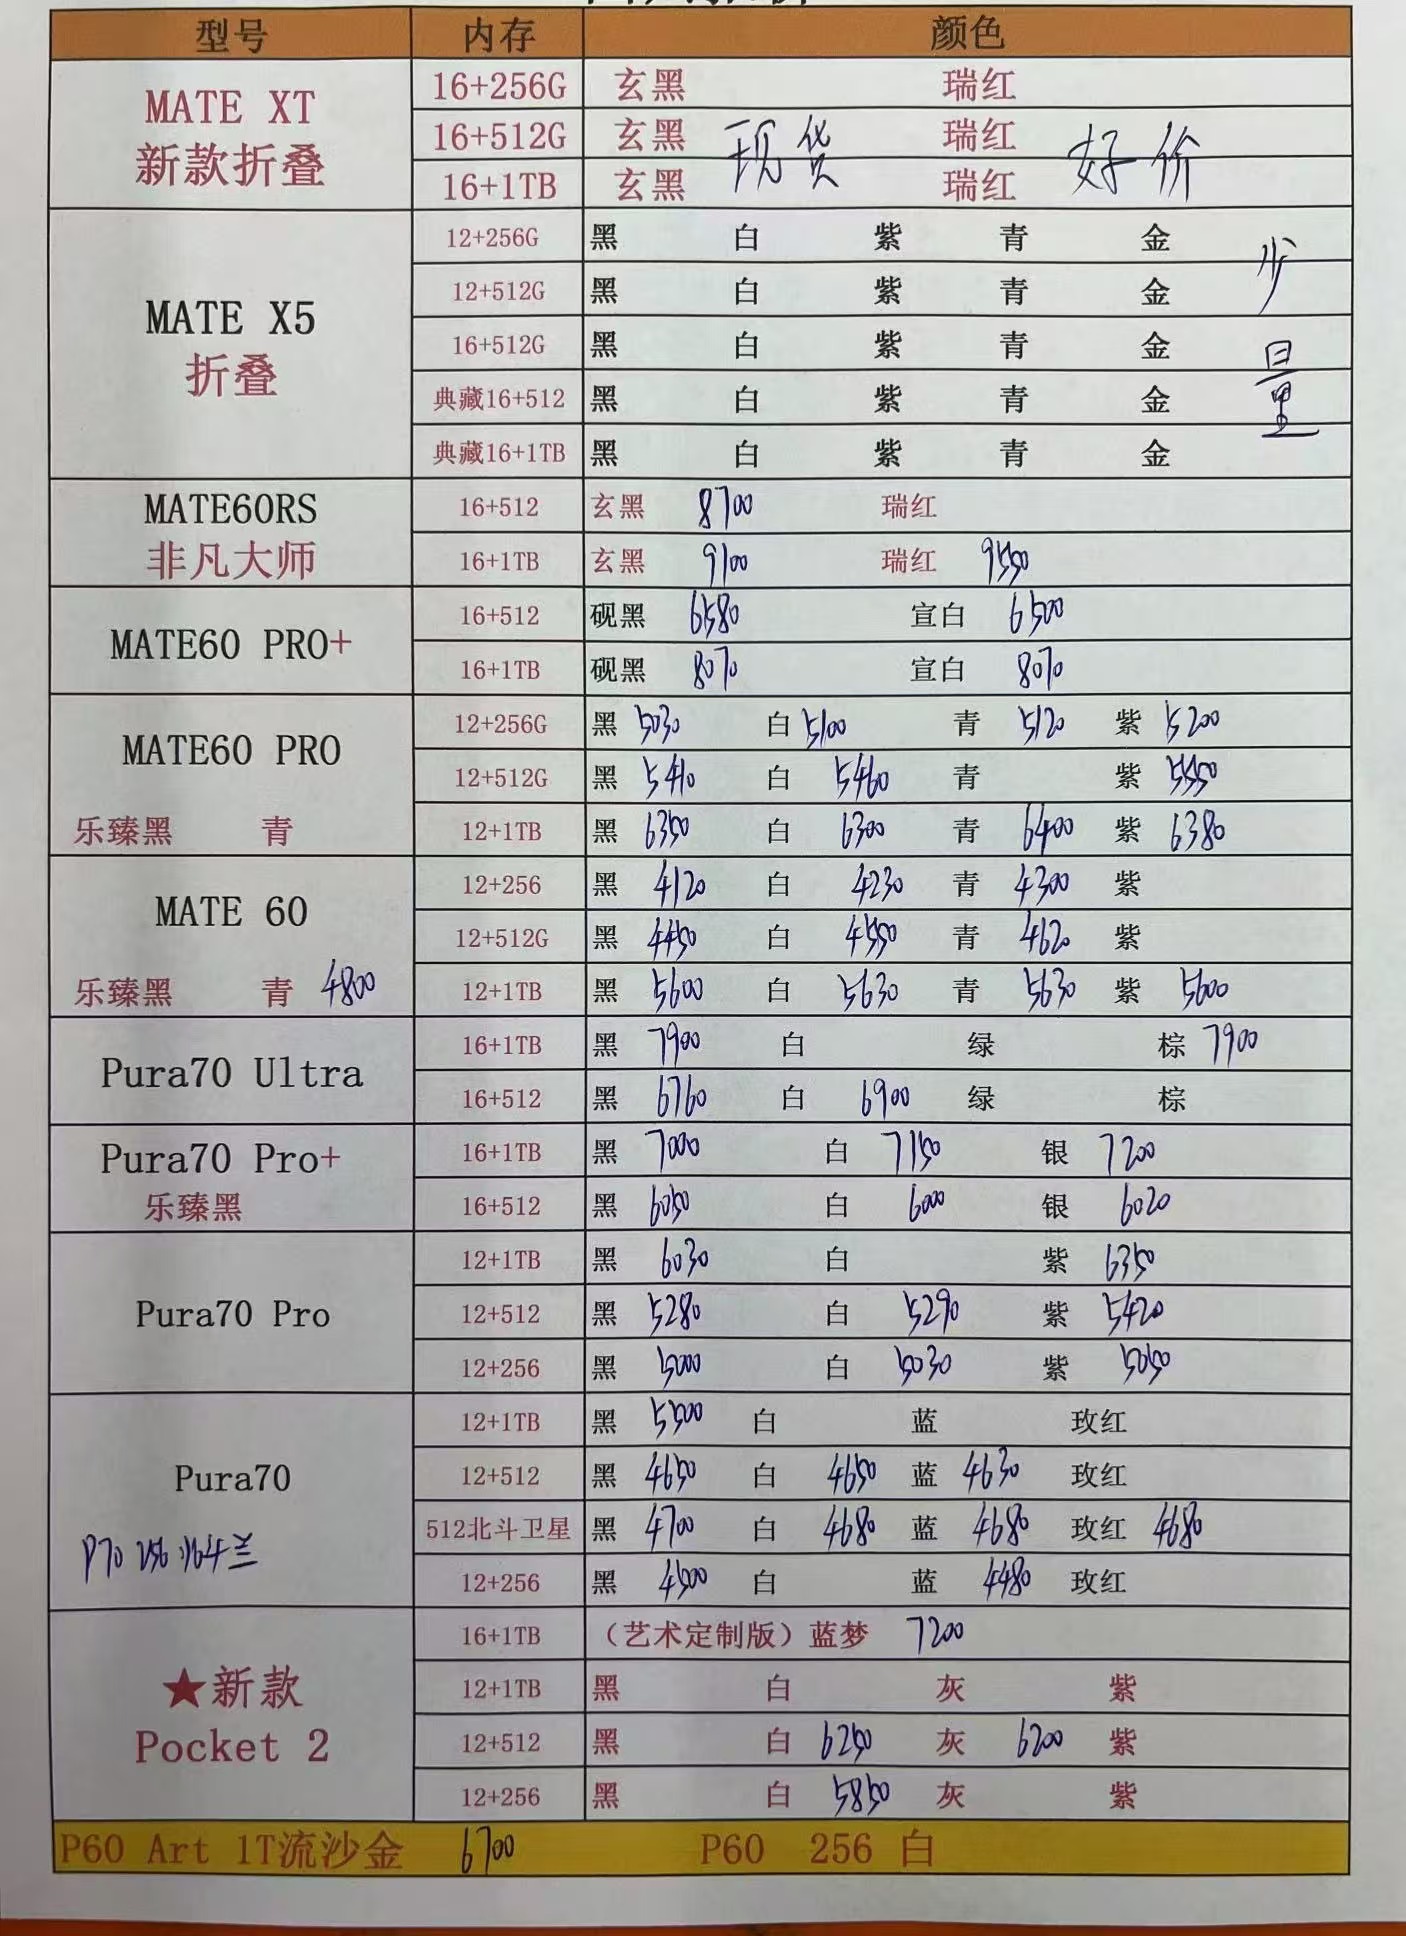 型号 内存 颜色
MATE XT 新款折叠
16+256G 玄黑 瑞红
16+512G 玄黑 现货 瑞红 好价
16+1TB 玄黑 瑞红
MATE X5 折叠 少量
12+256G 黑 白 紫 青 金
12+512G 黑 白 紫 青 金
16+512G 黑 白 紫 青 金
典藏16+512 黑 白 紫 青 金
典藏16+1TB 黑 白 紫 青 金
MATE60RS 非凡大师
16+512 玄黑 8700 瑞红
16+1TB 玄黑 9100 瑞红 9550
MATE60 PRO+
16+512 砚黑 6580 宣白 6500
16+1TB 砚黑 8070 宣白 8070
MATE60 PRO
12+256G 黑 5030 白 5100 青 5120 紫 5200
12+512G 黑 5410 白 5460 青 紫 5550
乐臻黑 青
12+1TB 黑 6350 白 6300 青 6400 紫 6380
MATE 60
12+256 黑 4120 白 4230 青 4300 紫
12+512G 黑 4450 白 4550 青 4620 紫
乐臻黑 青 4800
12+1TB 黑 5600 白 5630 青 5630 紫 5600
Pura70 Ultra
16+1TB 黑 7900 白 绿 棕 7900
16+512 黑 6760 白 6900 绿 棕
Pura70 Pro+
乐臻黑
16+1TB 黑 7000 白 7150 银 7200
16+512 黑 6050 白 6000 银 6020
Pura70 Pro
12+1TB 黑 6030 白 紫 6350
12+512 黑 5280 白 5290 紫 5420
12+256 黑 5000 白 5030 紫 5050
Pura70
P70 256
12+1TB 黑 5500 白 蓝 玫红
12+512 黑 4650 白 4650 蓝 4630 玫红
512北斗卫星 黑 4700 白 4680 蓝 4680 玫红 4680
12+256 黑 4500 白 蓝 4480 玫红
★新款
Pocket 2
16+1TB （艺术定制版）蓝梦 7200
12+1TB 黑 白 灰 紫
12+512 黑 白 6250 灰 6200 紫
12+256 黑 白 5850 灰 紫
P60 Art 1T流沙金 6700 P60 256 白